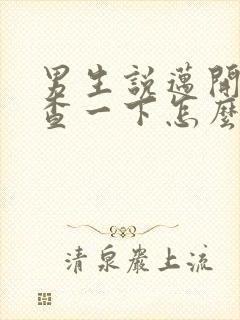 男生說邁開
查一下怎麼
清泉巖上流